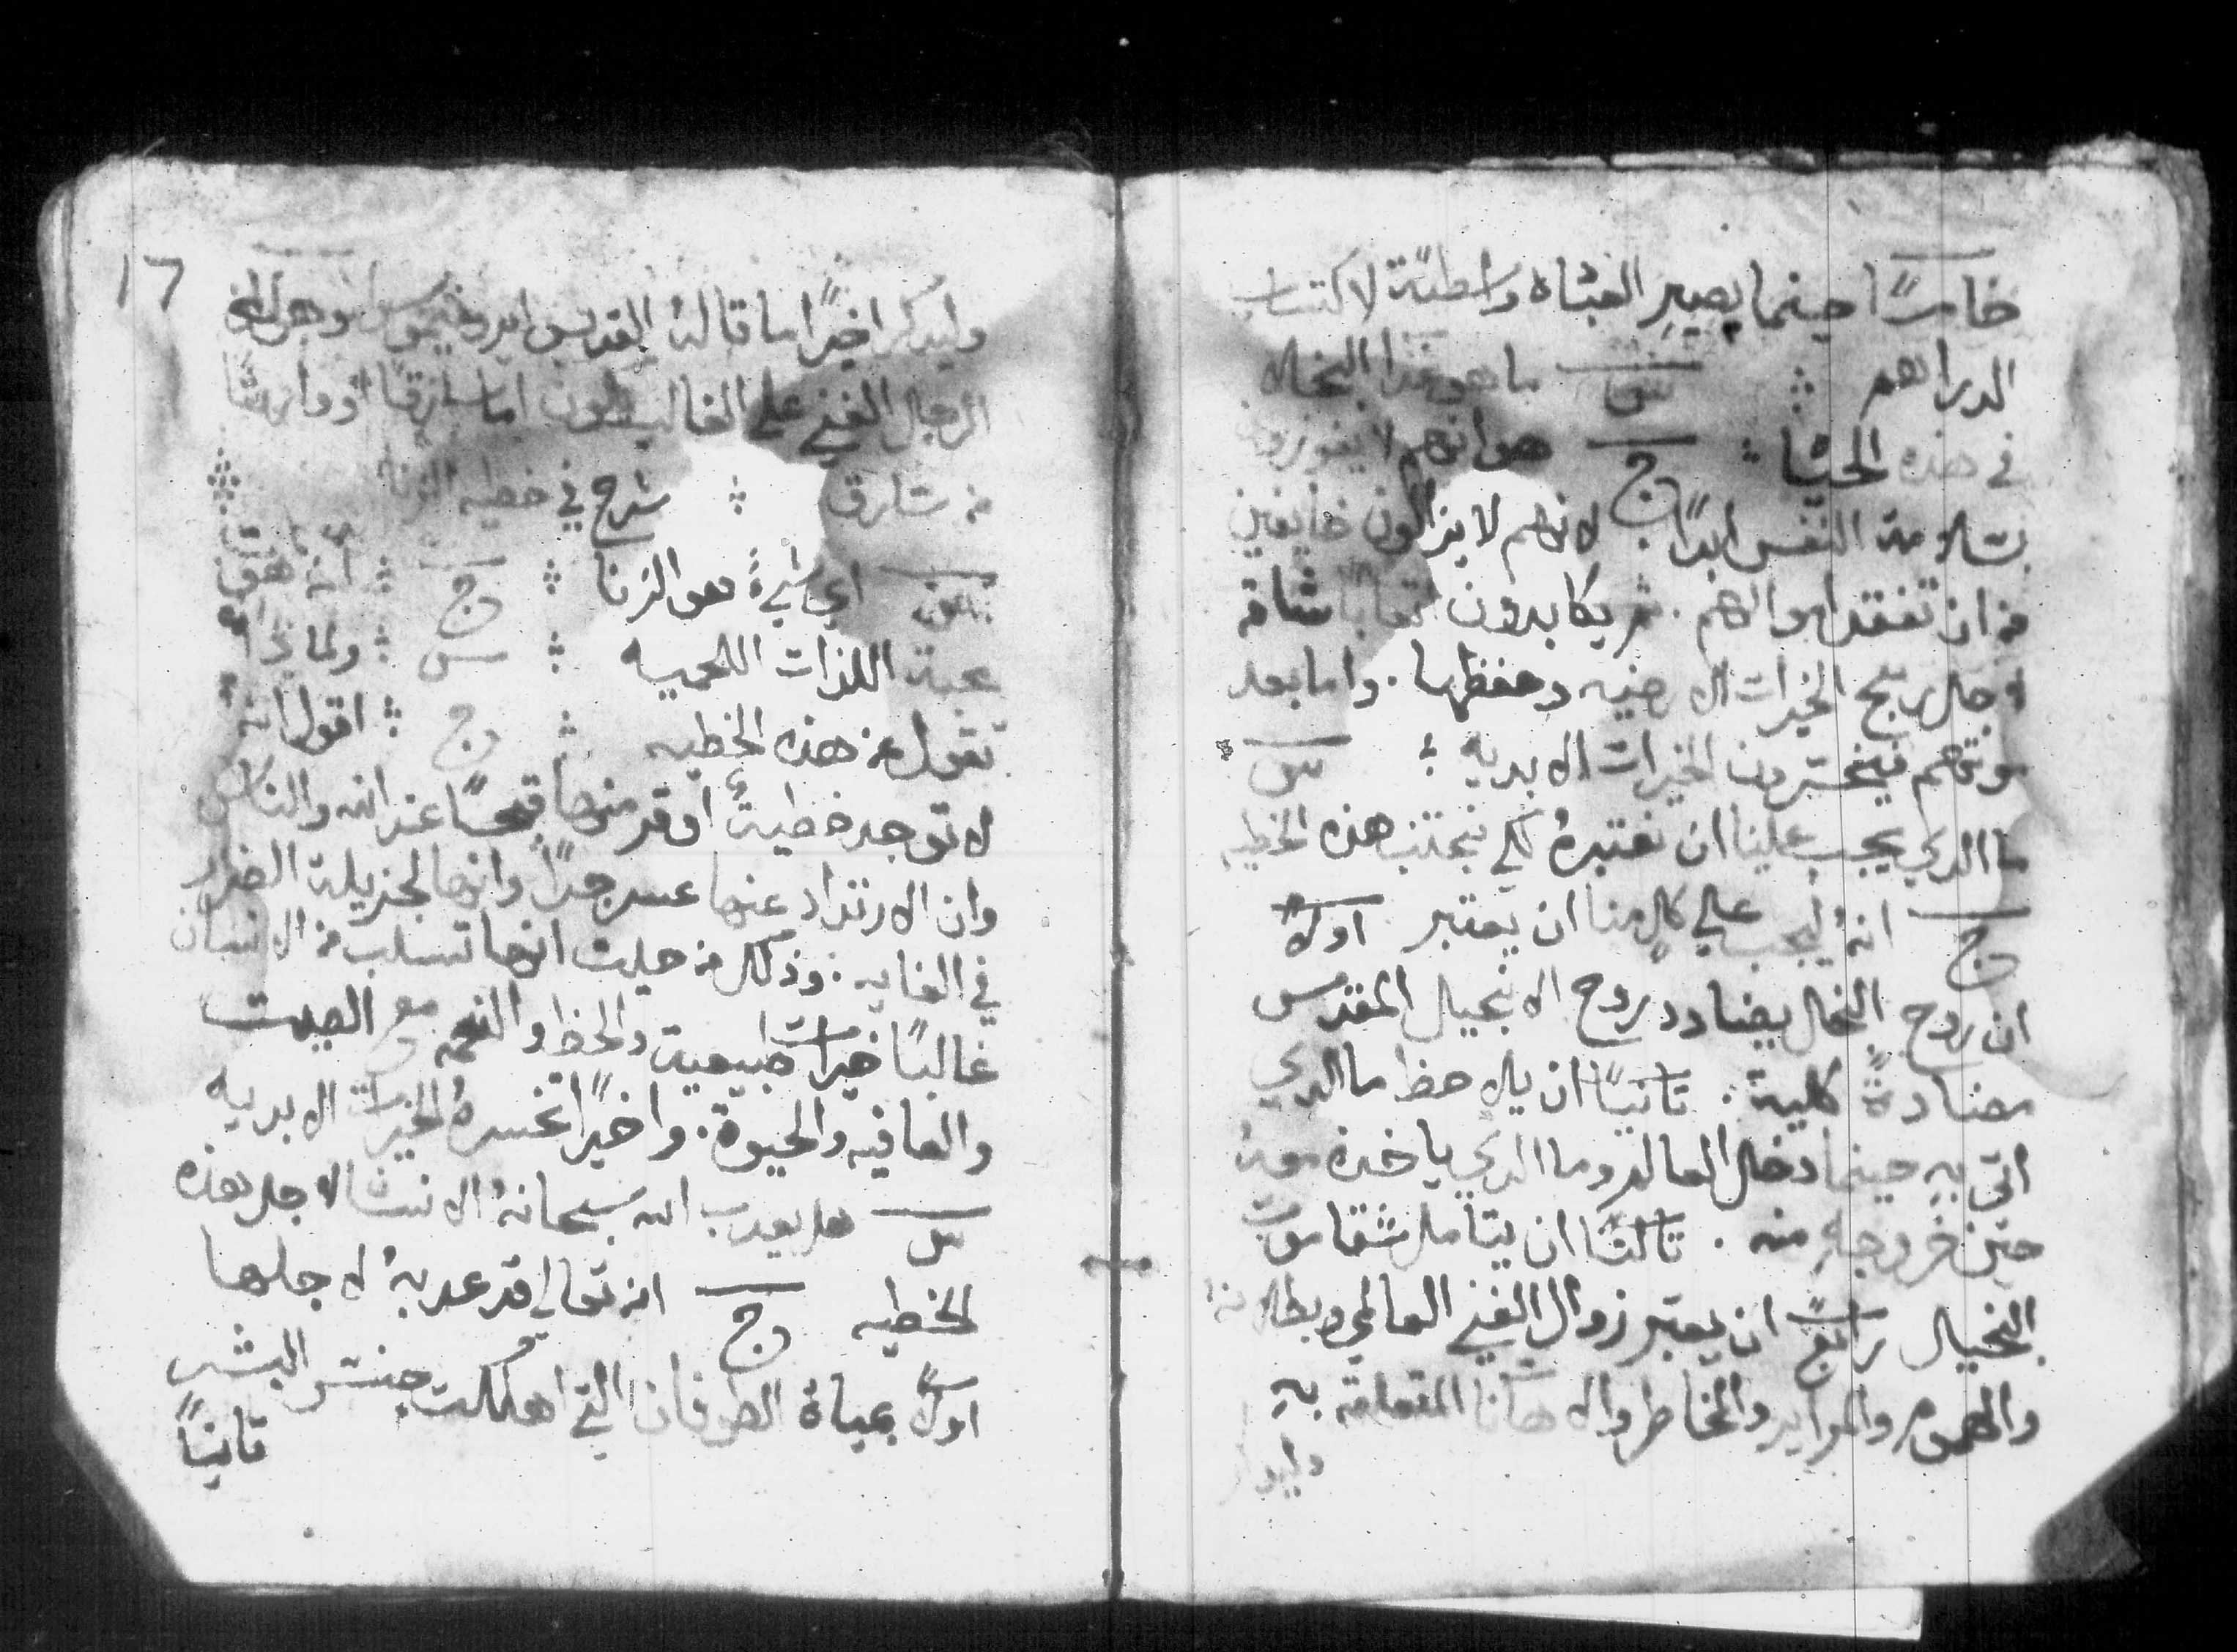 خامسًا حينما يصير الغشاه واسطةً لاكتساب
الدراهم ؞ س ما هو هذا البخلا
في هذه الحشا ؞ ج هو انهم لا يفوزون
بسلامة النفس ابدًا. لانهم لا يزالون خايفين
من ان تفقد اموالهم. ثم يكابدون اتعابا شاقه
لاجل ربح الخيرات الارضيه وحفظها. واما بعد
موتهم فيخسرون الخيرات الابديه ؛ س
ما الدي يجب علينا ان نعتبرهُ لكي نجتنب هذه الخطيه
ج انهُ يجب علي كلٍ منا ان يعتبر اولًا
ان روح البخل يضادد روح الانجيل المقدس
مضادةً كلية: تانيًا ان يلاحظ ما الدي
اتى بهِ حينما دخل العالم وما الدي ياخذه معهُ
حين خروجهِ منه. تالثًا ان يتامل شقاوت
البخيل رابعًا ان يعتبر زوال الغني العالمي وبطلانه
والهموم والمراير والمخاطر والاهانات المتعلقة بهِ
17
وليدكر اخيرًا ما قاله القديس ايرونيموس وهو ان
الرجل الغني علي الغالب يكون اما سارقًا او وارثًا
من سارق ؞ شرح في خطيه الزنا
س اي شيءً هو الزنا ؞ ج ؞ انه هو
محبة اللذات اللحميه ؞ س ؞ ولماذا
تقول عن هذه الخطيه ؞ ج ؞ اقول انهُ
لا توجد خطيةً اوفر منها قبحًا عند الله والناس
وان الارتداد عنها عسر جدًا وانها لجزيلة الضرر
في الغايه. وذلك من حيث انها تسلب من الانسان
غالبًا خيرات طبيعية والحظ والنعمه مع الصيت
والعافيه والحيوة. واخيرًا تخسرهُ الخيرات الابديه
س هل يعدب الله سبحانهُ الانسا لاجل هذه
الخطيه ج انه تعالي قد عدبهُ لاجلها
اولًا بمياة الطوفان التي اهلكت جنس البشر
تانيًا